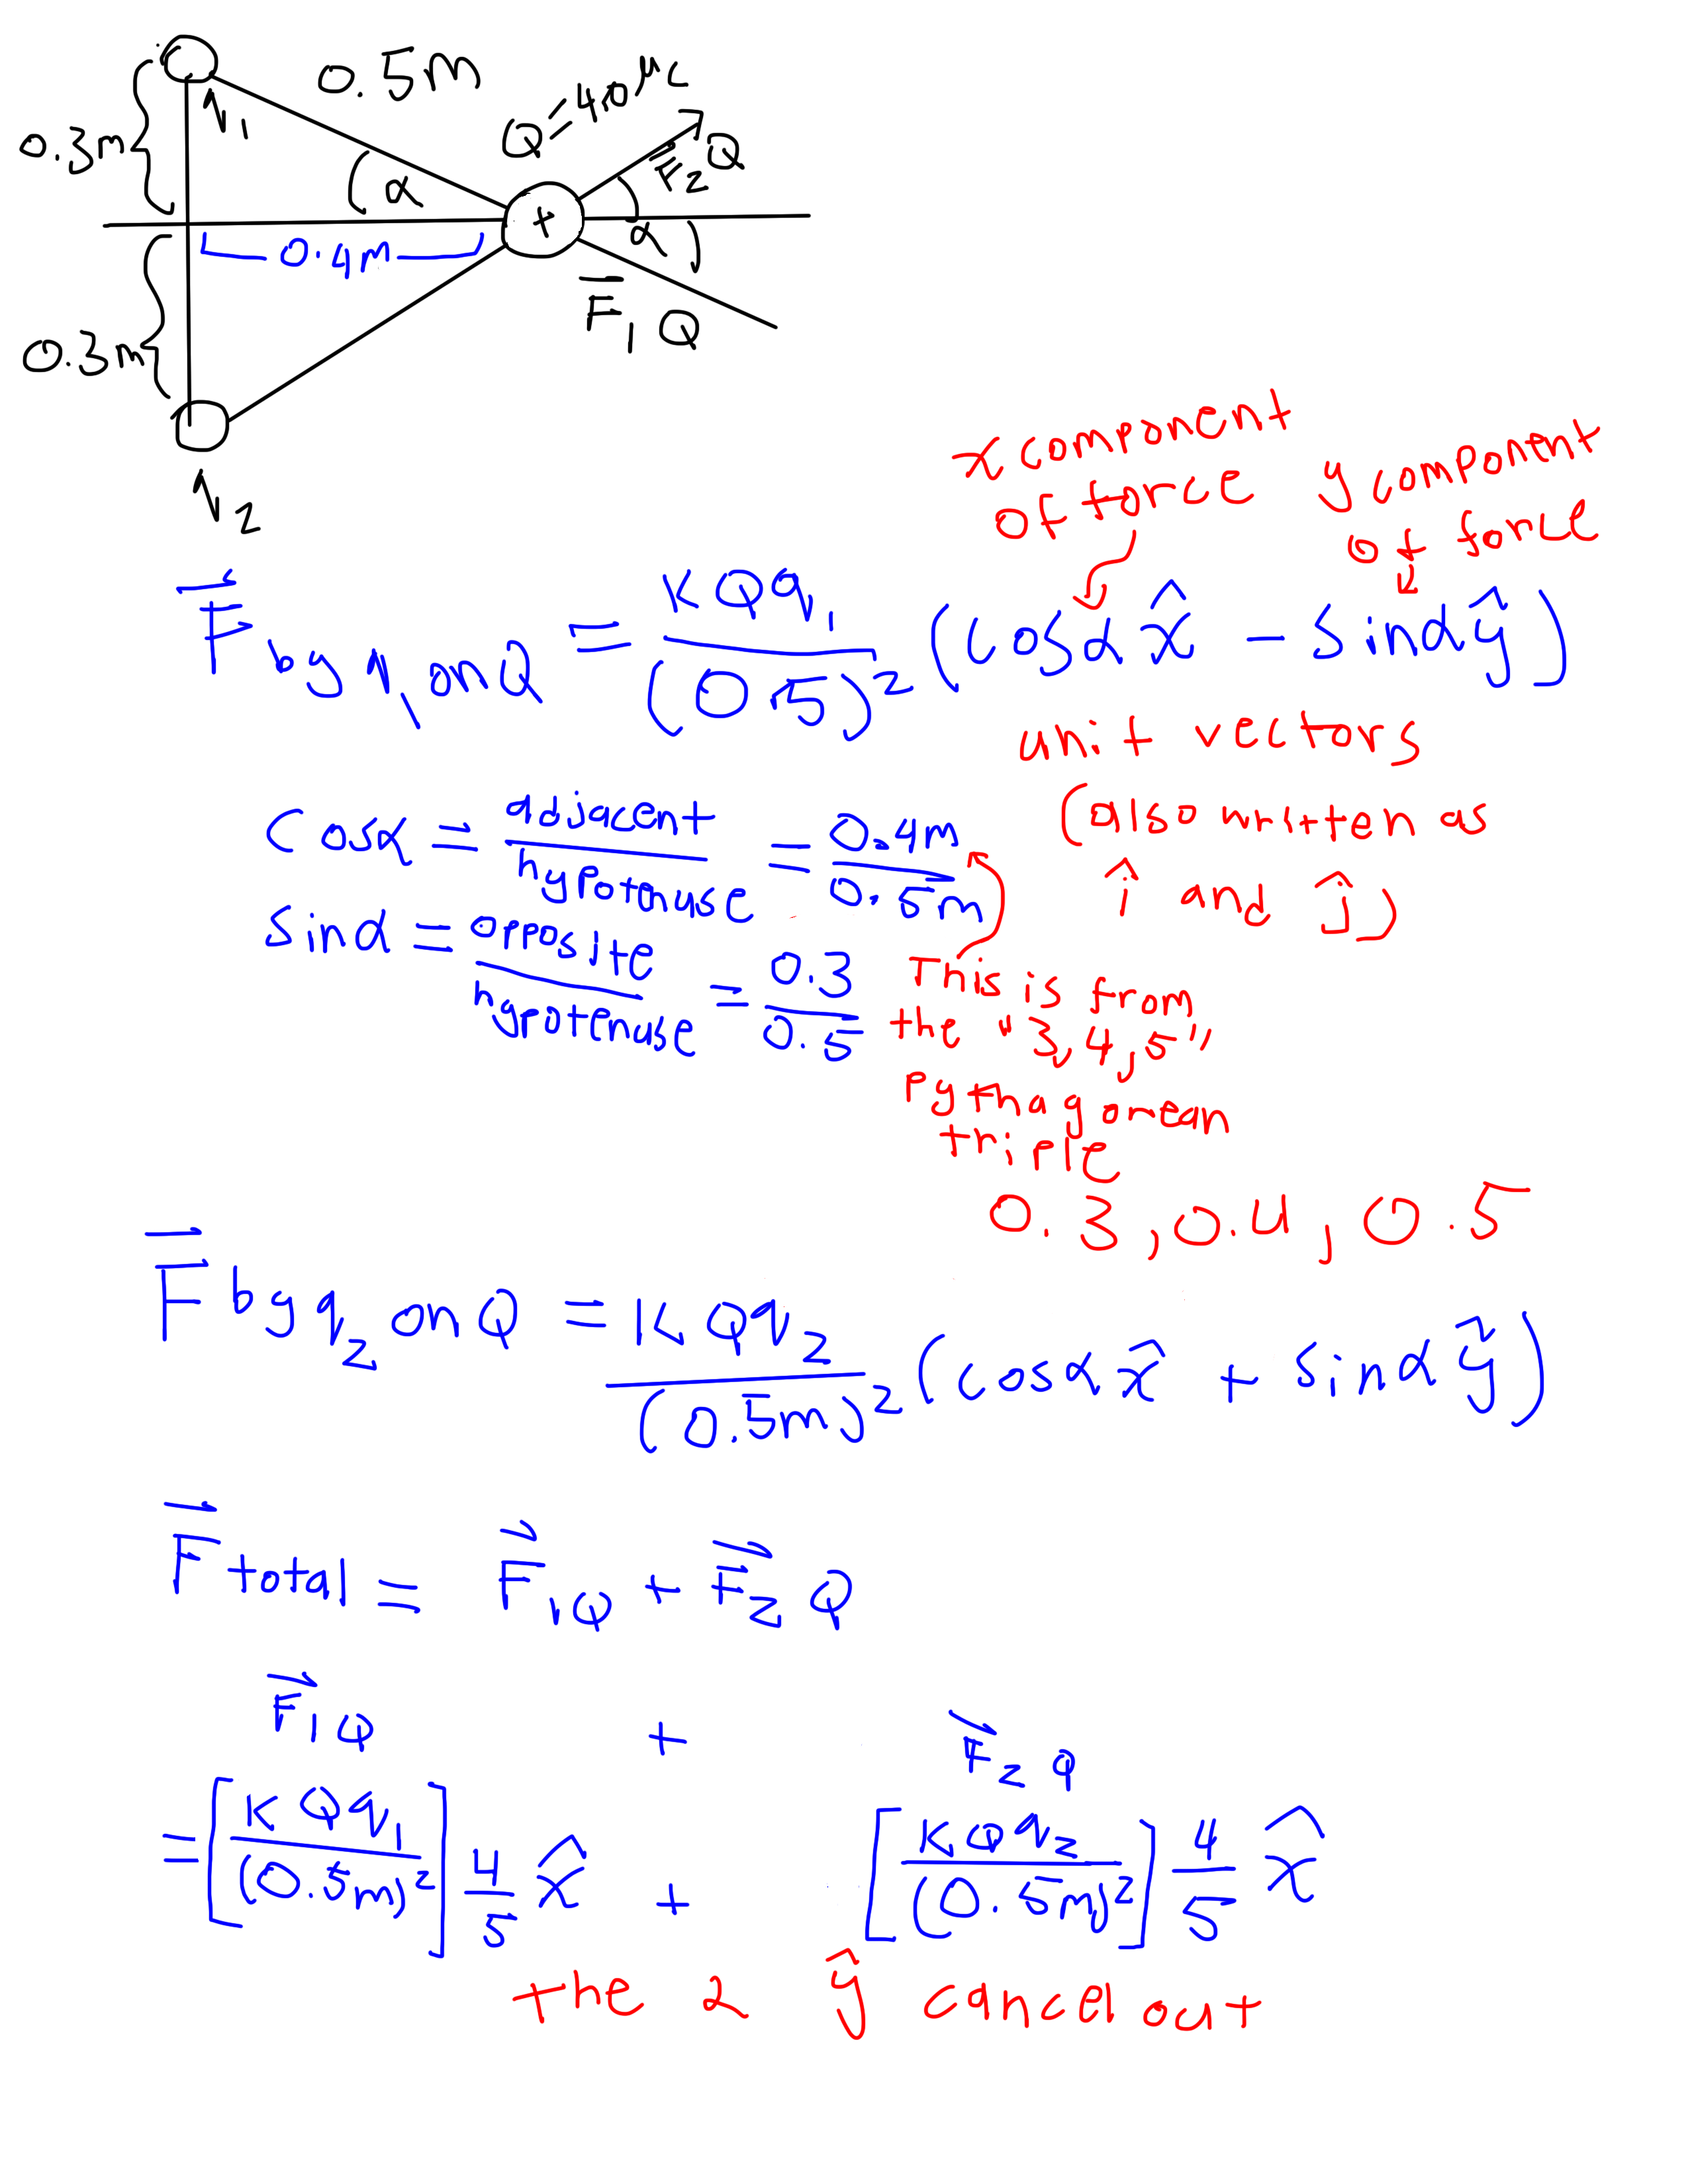 0.5m
Q=40μC
0.3m
q₁
α
F⃗₂Q
0.4m
α
F̅₁Q
0.3m
q₂
x component
of force
y component
of force
F⃗ by q₁ on Q = KQq₁/(0.5)² (cosα x̂ − sinα ŷ)
unit vectors
(also written as
î and ĵ)
cosα = adjacent/hypotenuse = 0.4m/0.5m
sinα = opposite/hypotenuse = 0.3/0.5
This is from
the "3,4,5"
Pythagorean
triple
0.3, 0.4, 0.5
F⃗ by q₂ on Q = KQq₂/(0.5m)² (cosα x̂ + sinα ŷ)
F⃗ total = F⃗₁Q + F⃗₂Q
F⃗₁Q + F⃗₂Q
= [KQq₁/(0.5m)²] 4/5 x̂ + [KQq₂/(0.5m)²] 4/5 x̂
the 2 ŷ cancel out